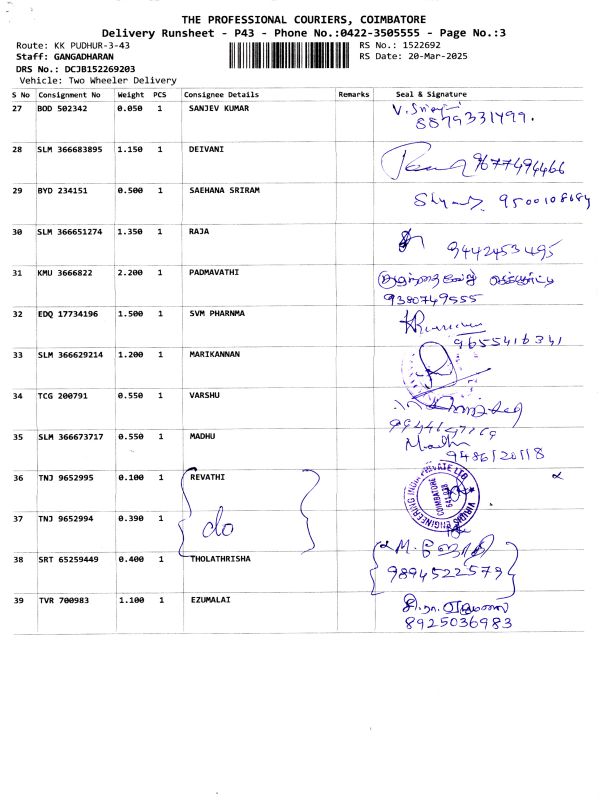 THE PROFESSIONAL COURIERS, COIMBATORE
Delivery Runsheet - P43 - Phone No.:0422-3505555 - Page No.:3
Route: KK PUDHUR-3-43
RS No.: 1522692
Staff: GANGADHARAN
RS Date: 20-Mar-2025
DRS No.: DCJB152269203
Vehicle: Two Wheeler Delivery
S No Consignment No Weight PCS Consignee Details Remarks Seal & Signature
27 BOD 502342 0.050 1 SANJEV KUMAR
8879331499.
28 SLM 366683895 1.150 1 DEIVANI
9677494466
29 BYD 234151 0.500 1 SAEHANA SRIRAM
9500108684
30 SLM 366651274 1.350 1 RAJA
9442453495
31 KMU 3666822 2.200 1 PADMAVATHI
9380749555
32 EDQ 17734196 1.500 1 SVM PHARNMA
9655416341
33 SLM 366629214 1.200 1 MARIKANNAN
34 TCG 200791 0.550 1 VARSHU
35 SLM 366673717 0.550 1 MADHU
Madhu
9486120118
36 TNJ 9652995 0.100 1 REVATHI
37 TNJ 9652994 0.390 1
do
38 SRT 65259449 0.400 1 THOLATHRISHA
9894522579
39 TVR 700983 1.100 1 EZUMALAI
8925036983